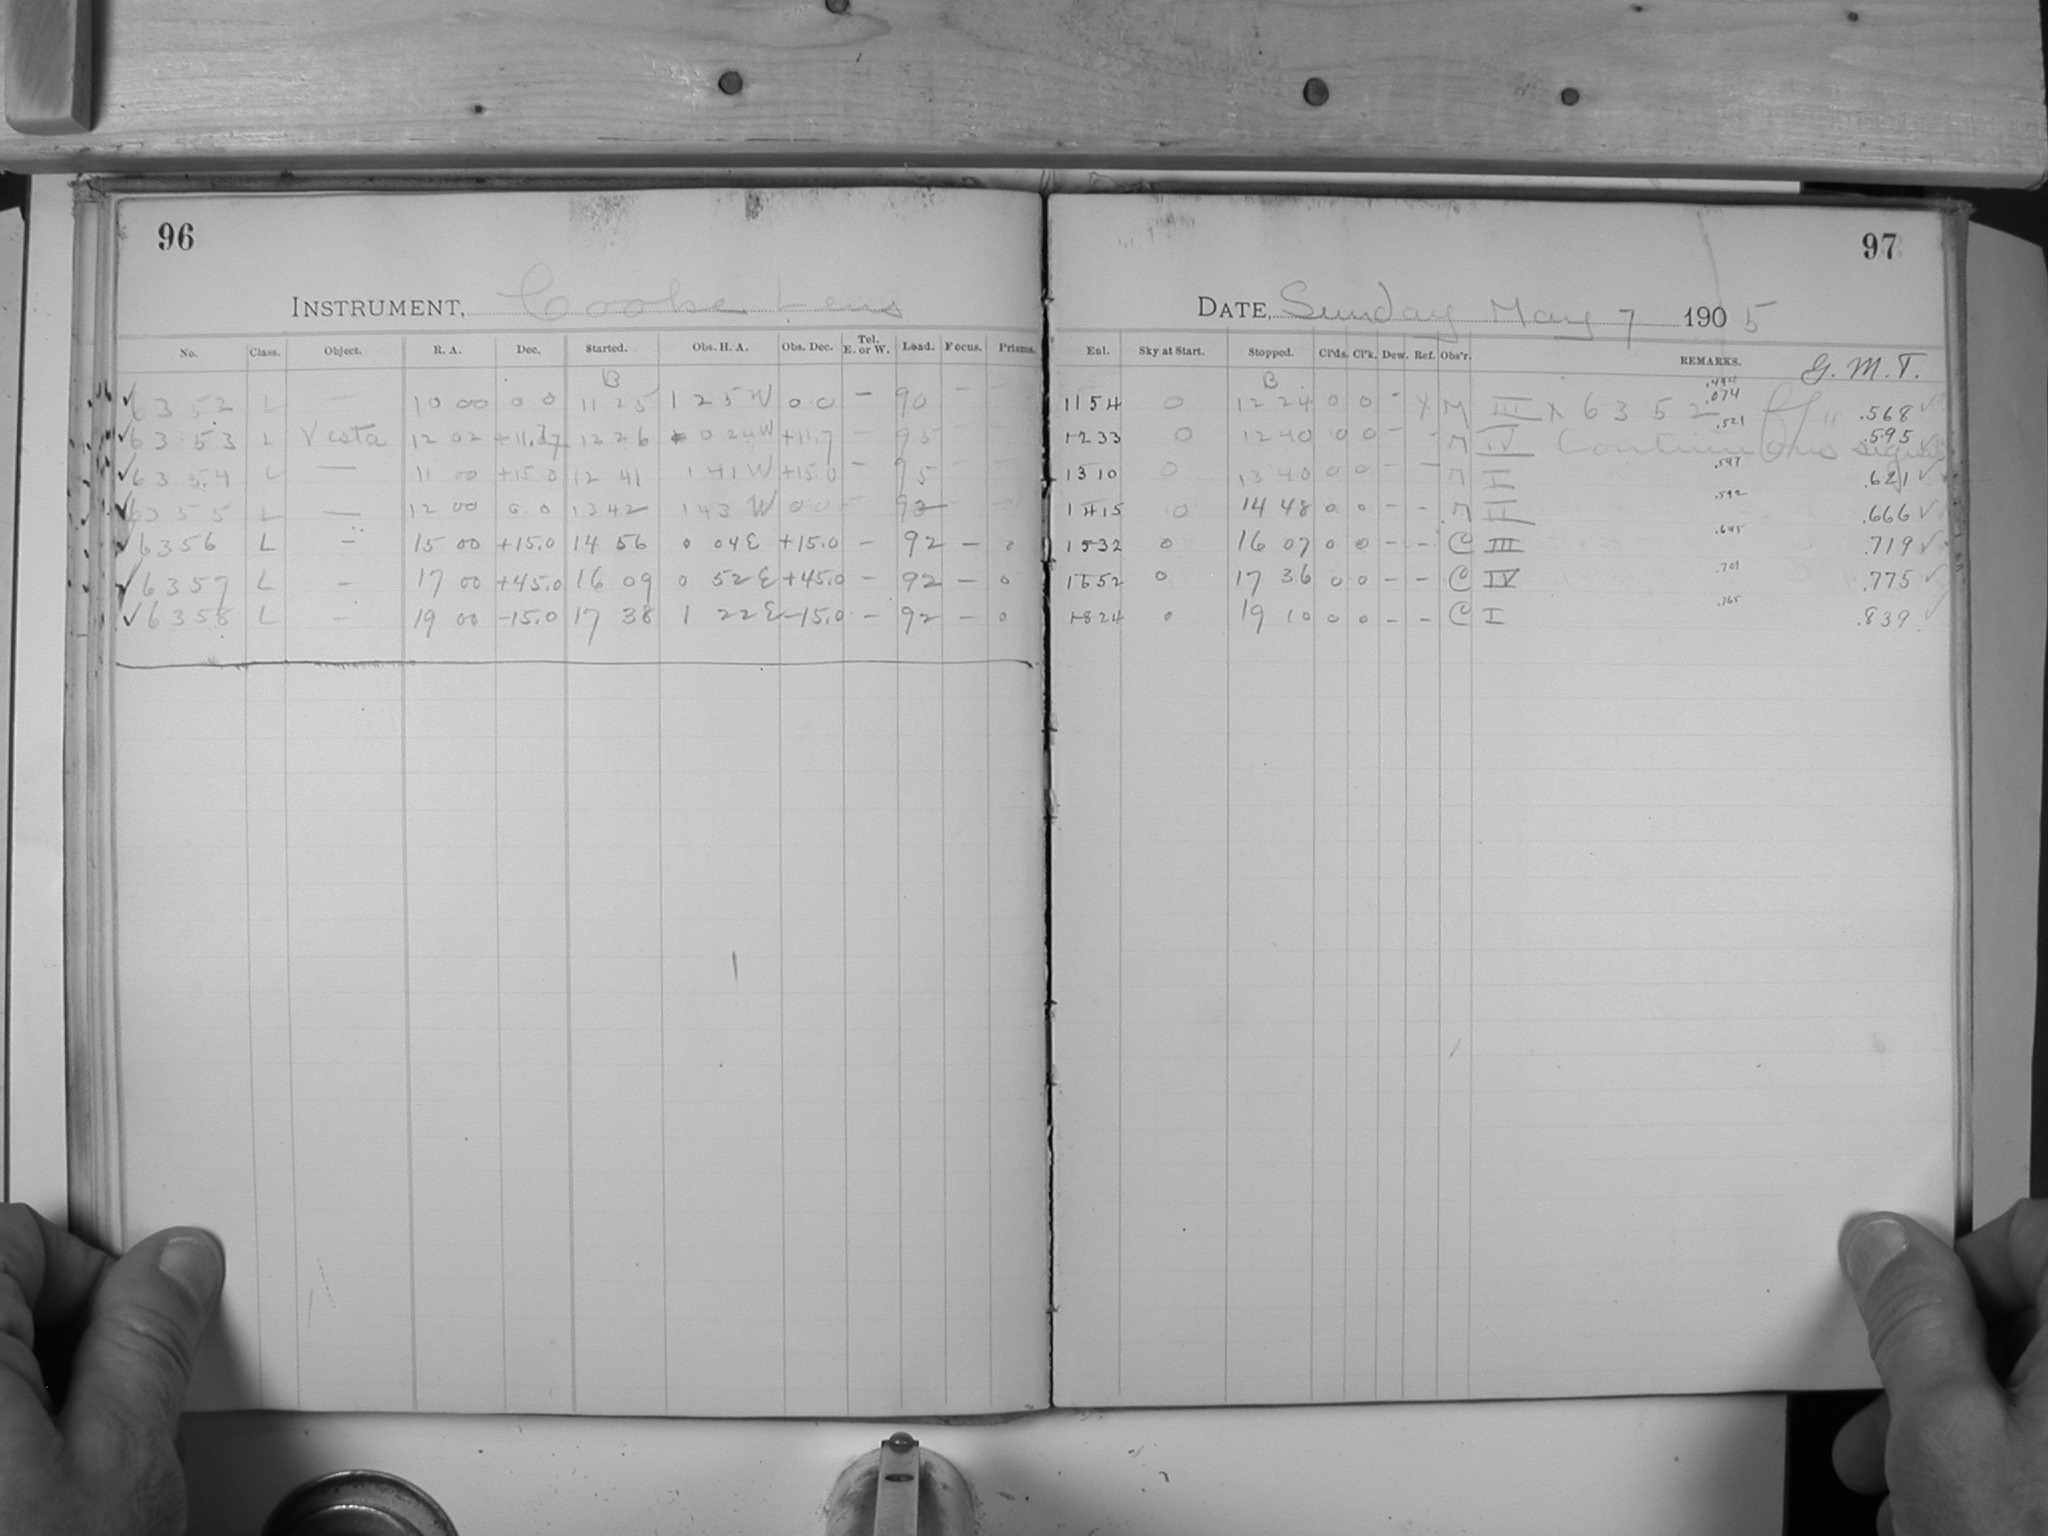 96
INSTRUMENT, Cooke Lens
No. Class. Object. R. A. Dec. Started. Obs. H. A. Obs. Dec. Tel. E. or W. Load. Focus. Prisms.
B
✓ 6352 L — 10 00 0.0 11 25 1 25 W 0.0 — 90 — —
✓ 6353 L Vesta 12 02 +11.7 12 26 0 24 W +11.7 — 95 — —
✓ 6354 L — 11 00 +15.0 12 41 1 41 W +15.0 — 95 — —
✓ 6355 L — 12 00 0.0 13 42 1 43 W 0.0 — 92 — —
✓ 6356 L — 15 00 +15.0 14 56 0 04 E +15.0 — 92 — 0
✓ 6357 L — 17 00 +45.0 16 09 0 52 E +45.0 — 92 — 0
✓ 6358 L — 19 00 -15.0 17 38 1 22 E -15.0 — 92 — 0
97
DATE, Sunday May 7 1905
Enl. Sky at Start. Stopped. Cl'ds. Cl'k. Dew. Ref. Obs'r. REMARKS. G. M. T.
B
1154 0 12 24 0 0 - X M III X 6352 .074 .568 ✓
1233 0 12 40 0 0 - - M IV Continuous .521 .595 ✓
1310 0 13 40 0 0 - - M I .547 .621 ✓
1415 0 14 48 0 0 - - M II .592 .666 ✓
1532 0 16 07 0 0 - - C III .645 .719 ✓
1652 0 17 36 0 0 - - C IV .701 .775 ✓
1824 0 19 10 0 0 - - C I .765 .839 ✓